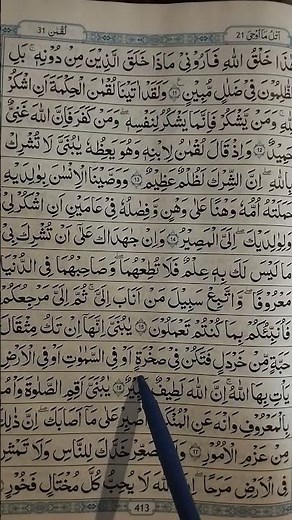 لُقْمٰن 31
اُتْلُ مَآ اُوْحِيَ 21
هٰذَا خَلْقُ اللّٰهِ فَاَرُوْنِيْ مَاذَا خَلَقَ الَّذِيْنَ مِنْ دُوْنِهٖ ؕ بَلِ
الظّٰلِمُوْنَ فِيْ ضَلٰلٍ مُّبِيْنٍ ۝۱۱ وَلَقَدْ اٰتَيْنَا لُقْمٰنَ الْحِكْمَةَ اَنِ اشْكُرْ
لِلّٰهِ ؕ وَمَنْ يَّشْكُرْ فَاِنَّمَا يَشْكُرُ لِنَفْسِهٖ ۚ وَمَنْ كَفَرَ فَاِنَّ اللّٰهَ غَنِيٌّ
حَمِيْدٌ ۝۱۲ وَاِذْ قَالَ لُقْمٰنُ لِابْنِهٖ وَهُوَ يَعِظُهٗ يٰبُنَيَّ لَا تُشْرِكْ
بِاللّٰهِ ؕ اِنَّ الشِّرْكَ لَظُلْمٌ عَظِيْمٌ ۝۱۳ وَوَصَّيْنَا الْاِنْسٰنَ بِوٰلِدَيْهِ ۚ
حَمَلَتْهُ اُمُّهٗ وَهْنًا عَلٰى وَهْنٍ وَّفِصٰلُهٗ فِيْ عَامَيْنِ اَنِ اشْكُرْ لِيْ
وَلِوٰلِدَيْكَ ؕ اِلَيَّ الْمَصِيْرُ ۝۱۴ وَاِنْ جٰهَدٰكَ عَلٰٓى اَنْ تُشْرِكَ بِيْ
مَا لَيْسَ لَكَ بِهٖ عِلْمٌ فَلَا تُطِعْهُمَا وَصَاحِبْهُمَا فِي الدُّنْيَا
مَعْرُوْفًا ۖ وَّاتَّبِعْ سَبِيْلَ مَنْ اَنَابَ اِلَيَّ ۚ ثُمَّ اِلَيَّ مَرْجِعُكُمْ
فَاُنَبِّئُكُمْ بِمَا كُنْتُمْ تَعْمَلُوْنَ ۝۱۵ يٰبُنَيَّ اِنَّهَآ اِنْ تَكُ مِثْقَالَ
حَبَّةٍ مِّنْ خَرْدَلٍ فَتَكُنْ فِيْ صَخْرَةٍ اَوْ فِي السَّمٰوٰتِ اَوْ فِي الْاَرْضِ
يَاْتِ بِهَا اللّٰهُ ؕ اِنَّ اللّٰهَ لَطِيْفٌ خَبِيْرٌ ۝۱۶ يٰبُنَيَّ اَقِمِ الصَّلٰوةَ وَاْمُرْ
بِالْمَعْرُوْفِ وَانْهَ عَنِ الْمُنْكَرِ وَاصْبِرْ عَلٰى مَآ اَصَابَكَ ؕ اِنَّ ذٰلِكَ
مِنْ عَزْمِ الْاُمُوْرِ ۝۱۷ وَلَا تُصَعِّرْ خَدَّكَ لِلنَّاسِ وَلَا تَمْشِ
فِي الْاَرْضِ مَرَحًا ؕ اِنَّ اللّٰهَ لَا يُحِبُّ كُلَّ مُخْتَالٍ فَخُوْرٍ
413